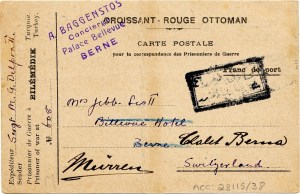 CROISSANT-ROUGE OTTOMAN
A. BAGGENSTOS
Concierge
Palace Bellevue
BERNE
CARTE POSTALE
pour la correspondance des Prisonniers de Guerre
Franc de port
Expéditeur
Sender
Prisonnier de Guerre à
Prisoner of war at
BILÉMÉDIK
Turquie.
Turkey.
Sergt M. G.
№ 608
Mrs Jebb
Bellevue Hotel
Berne
Chalet Berna
Mürren
Switzerland
ACC: 28115/38